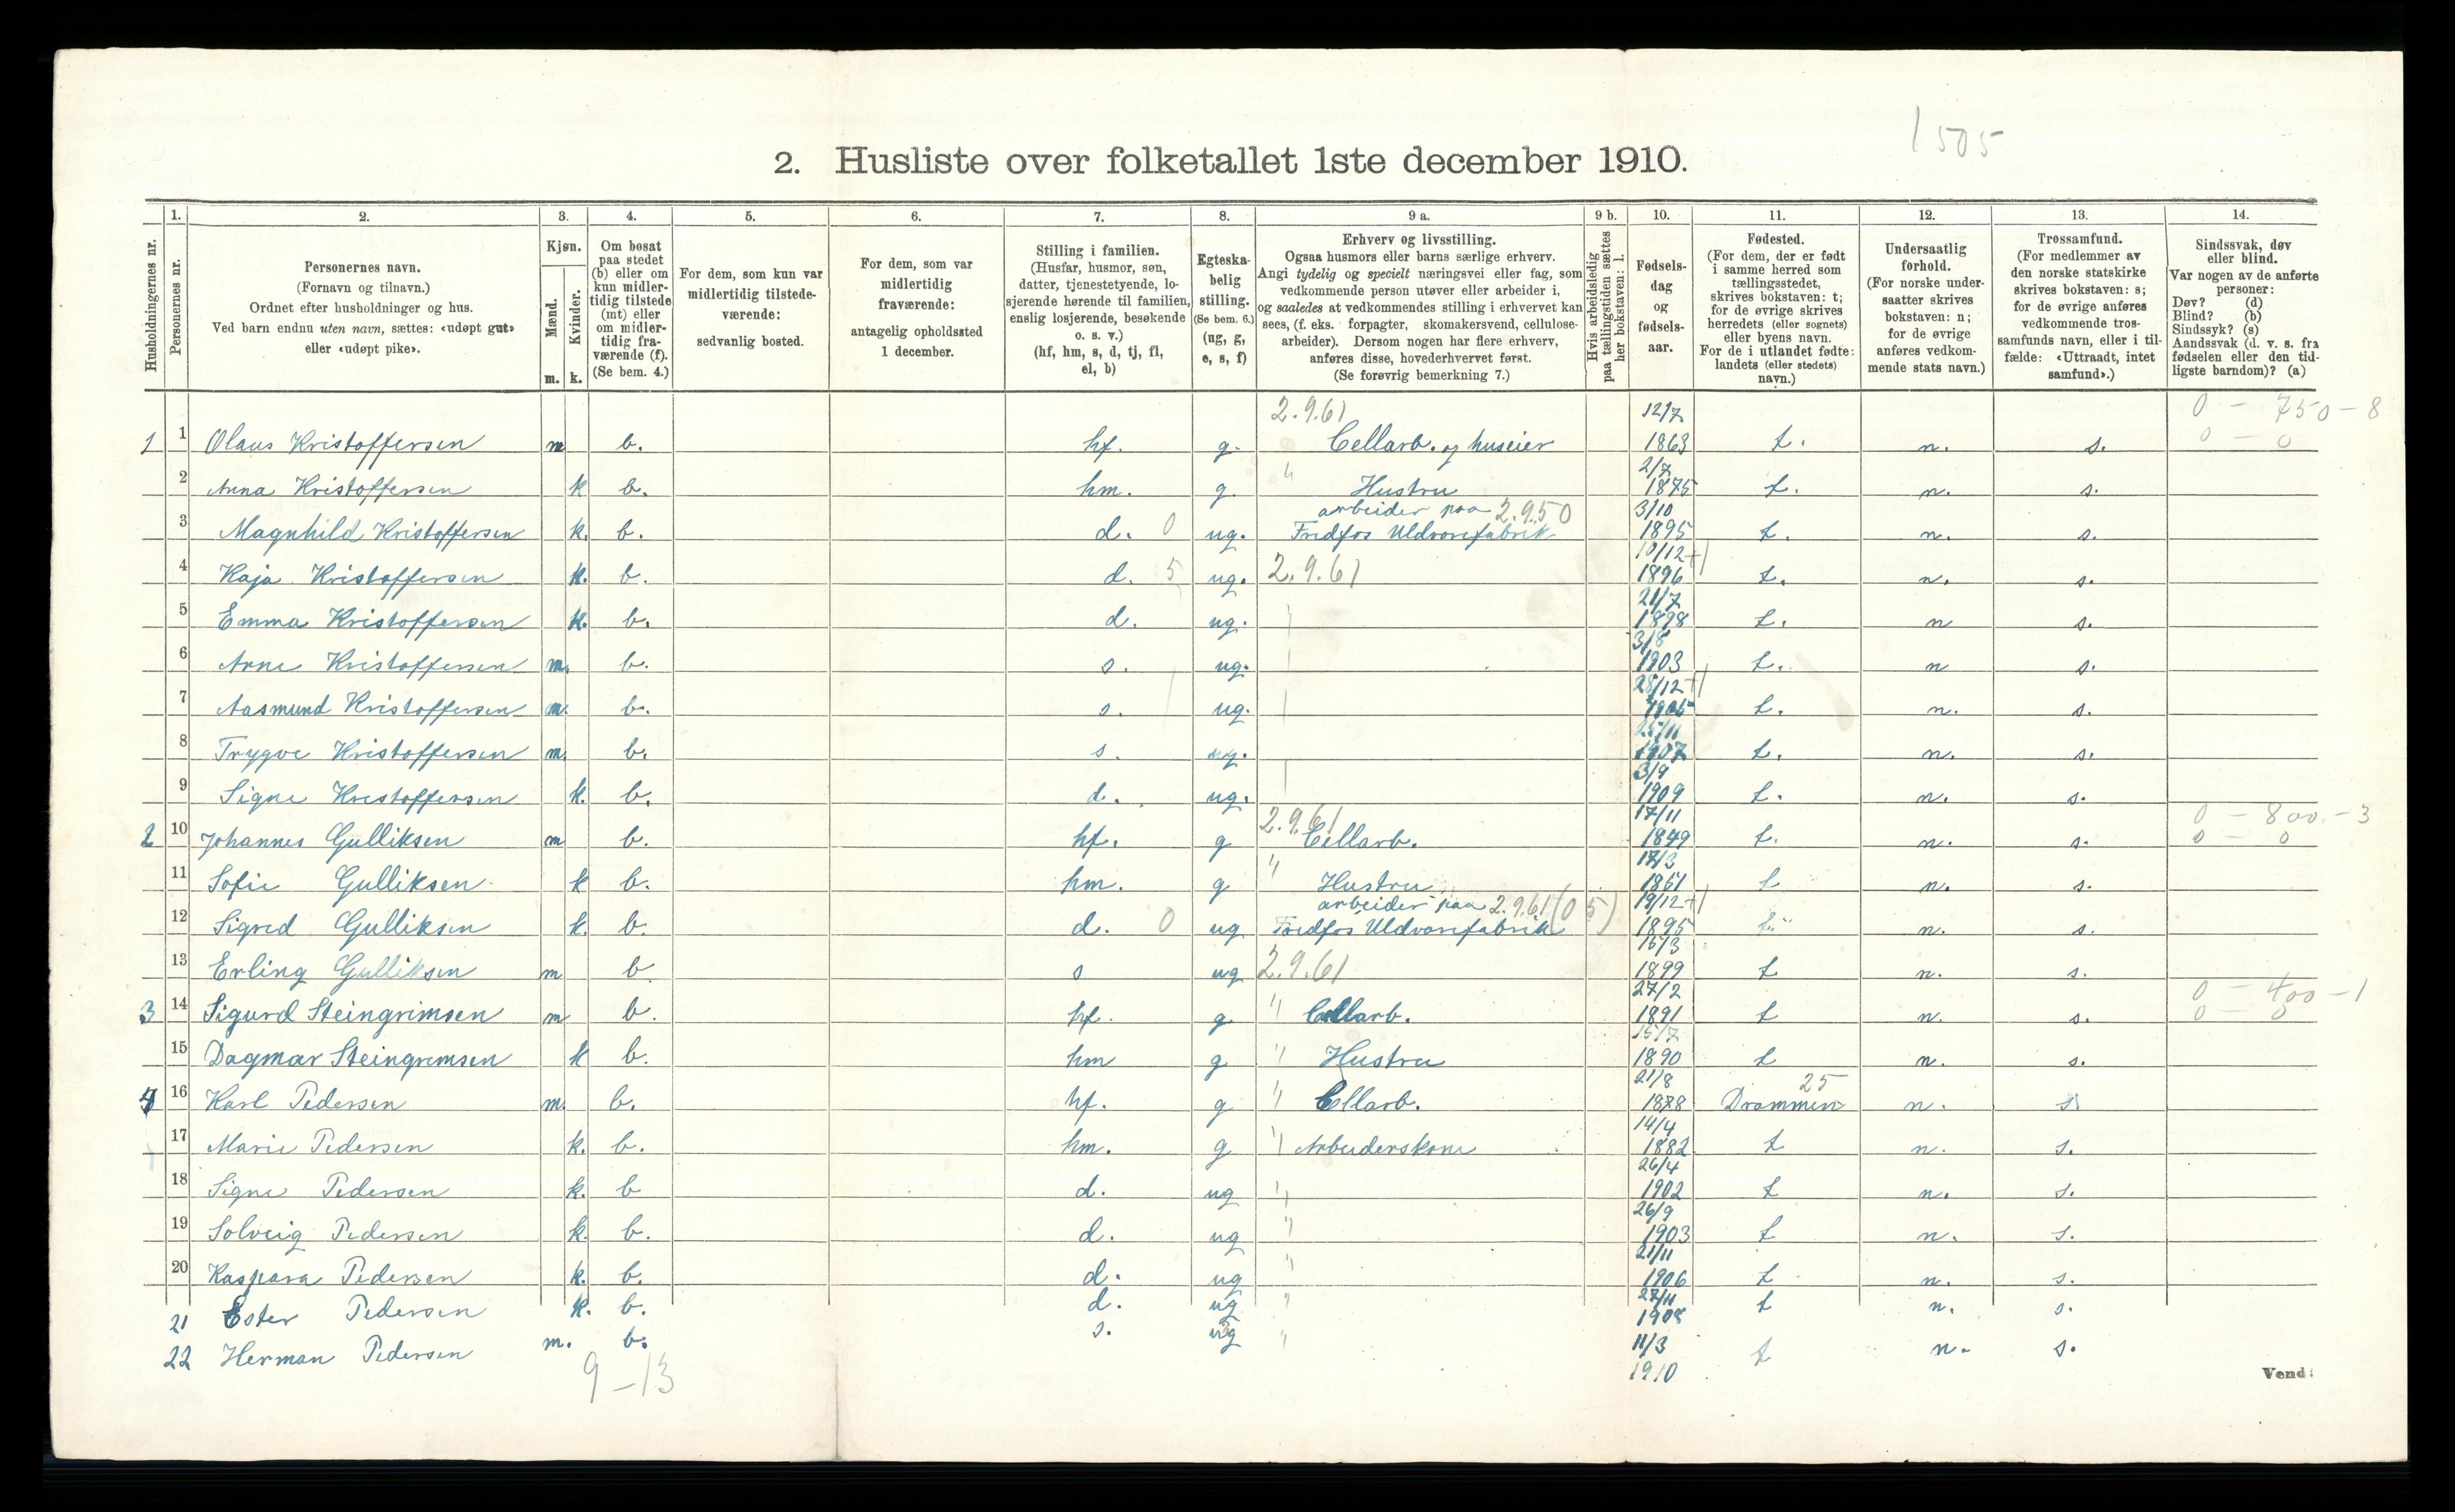 1505
2. Husliste over folketallet 1ste december 1910.
1. 2. 3. 4. 5. 6. 7. 8. 9 a. 9 b. 10. 11. 12. 13. 14.
Husholdningernes nr.
Personernes nr.
Personernes navn.
(Fornavn og tilnavn.)
Ordnet efter husholdninger og hus.
Ved barn endnu uten navn, sættes: «udøpt gut»
eller «udøpt pike».
Kjøn.
Mænd.
Kvinder.
m. k.
Om bosat
paa stedet
(b) eller om
kun midler-
tidig tilstede
(mt) eller
om midler-
tidig fra-
værende (f).
(Se bem. 4.)
For dem, som kun var
midlertidig tilstede-
værende:
sedvanlig bosted.
For dem, som var
midlertidig
fraværende:
antagelig opholdssted
1 december.
Stilling i familien.
(Husfar, husmor, søn,
datter, tjenestetyende, lo-
sjerende hørende til familien,
enslig losjerende, besøkende
o. s. v.)
(hf, hm, s, d, tj, fl,
el, b)
Egteska-
belig
stilling.
(Se bem. 6.)
(ug, g,
e, s, f)
Erhverv og livsstilling.
Ogsaa husmors eller barns særlige erhverv.
Angi tydelig og specielt næringsvei eller fag, som
vedkommende person utøver eller arbeider i,
og saaledes at vedkommendes stilling i erhvervet kan
sees, (f. eks. forpagter, skomakersvend, cellulose-
arbeider). Dersom nogen har flere erhverv,
anføres disse, hovederhvervet først.
(Se forøvrig bemerkning 7.)
Hvis arbeidsledig
paa tællingstiden sættes
her bokstaven: l.
Fødsels-
dag
og
fødsels-
aar.
Fødested.
(For dem, der er født
i samme herred som
tællingsstedet,
skrives bokstaven: t;
for de øvrige skrives
herredets (eller sognets)
eller byens navn.
For de i utlandet fødte:
landets (eller stedets)
navn.)
Undersaatlig
forhold.
(For norske under-
saatter skrives
bokstaven: n;
for de øvrige
anføres vedkom-
mende stats navn.)
Trossamfund.
(For medlemmer av
den norske statskirke
skrives bokstaven: s;
for de øvrige anføres
vedkommende tros-
samfunds navn, eller i til-
fælde: «Uttraadt, intet
samfund».)
Sindssvak, døv
eller blind.
Var nogen av de anførte
personer:
Døv? (d)
Blind? (b)
Sindssyk? (s)
Aandssvak (d. v. s. fra
fødselen eller den tid-
ligste barndom)? (a)
2.9.61 12/7 0 - 750 - 8
1 1 Olaus Kristoffersen m b. hf. g. Cellarb. og huseier 1863 t. n. s. 0 - 0
2/7
2 Anna Kristoffersen k b. hm. g " Hustru 1875 t. n. s.
arbeider paa 2.9.50 3/10
3 Magnhild Kristoffersen k. b. d. 0 ug. Fredfos Uldvarefabrik 1895 t. n. s.
10/12 +1
4 Kaja Kristoffersen k. b. d. 5 ug. 2.9.61 1896 t. n. s.
21/7
5 Emma Kristoffersen k. b. d. ug. 1898 t. n s.
3/8
6 Arne Kristoffersen m. b. s. ug. 1903 t. n s.
28/12 +1
7 Aasmund Kristoffersen m. b. s. ug. 1905 t. n. s.
8 Trygve Kristoffersen m. b. s. ug. 1907 t. n. s.
3/9
9 Signe Kristoffersen k. b. d. ug. 1909 t. n. s.
2.9.61 17/11 0 - 800 - 3
2 10 Johannes Gulliksen m b. hf. g Cellarb. 1849 t. n. s. 0 - 0
17/3
11 Sofie Gulliksen k b. hm. g " Hustru 1851 t n. s.
arbeider paa 2.9.61 (05) 19/12 +1
12 Sigrid Gulliksen k. b. d. 0 ug Fredfos Uldvarefabrik 1895 t. n. s.
15/3
13 Erling Gulliksen m b s ug 2.9.61 1899 t n. s.
27/2 0 - 400 - 1
3 14 Sigurd Steingrimsen m b. hf. g " Cellarb. 1891 t n. s. 0 - 0
15/7
15 Dagmar Steingrimsen k b. hm g " Hustru 1890 t n. s.
21/8 25
4 16 Karl Pedersen m. b. hf. g " Cellarb. 1878 Drammen n. s.
14/4
17 Marie Pedersen k. b. hm. g " Arbeiderskone 1882 t n. s.
26/4
18 Signe Pedersen k. b d. ug " 1902 t n. s.
26/9
19 Solveig Pedersen k. b. d. ug " 1903 t n. s.
21/11
20 Kaspara Pedersen k. b. d. ug " 1906 t n. s.
27/11
21 Ester Pedersen k. b. d. ug " 1908 t n. s.
11/3
22 Herman Pedersen m. b. s. ug " 1910 t n. s.
9 - 13
Vend!